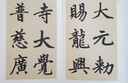 大元勅
賜龍興
寺大覺
普慈廣